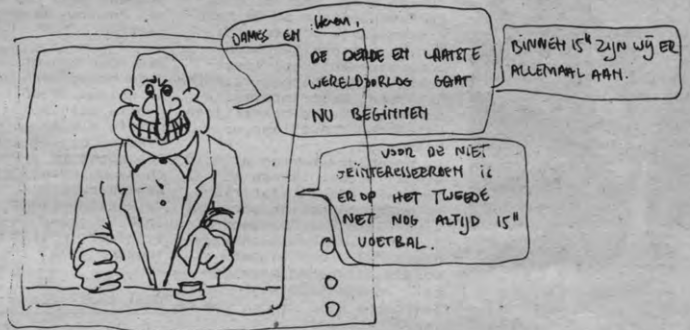 DAMES EN Heren,
DE DERDE EN LAATSTE
WERELDOORLOG GAAT
NU BEGINNEN
BINNEN 15" ZIJN WIJ ER
ALLEMAAL AAN.
VOOR DE NIET
GEÏNTERESSEERDEN IS
ER OP HET TWEEDE
NET NOG ALTIJD 15"
VOETBAL.